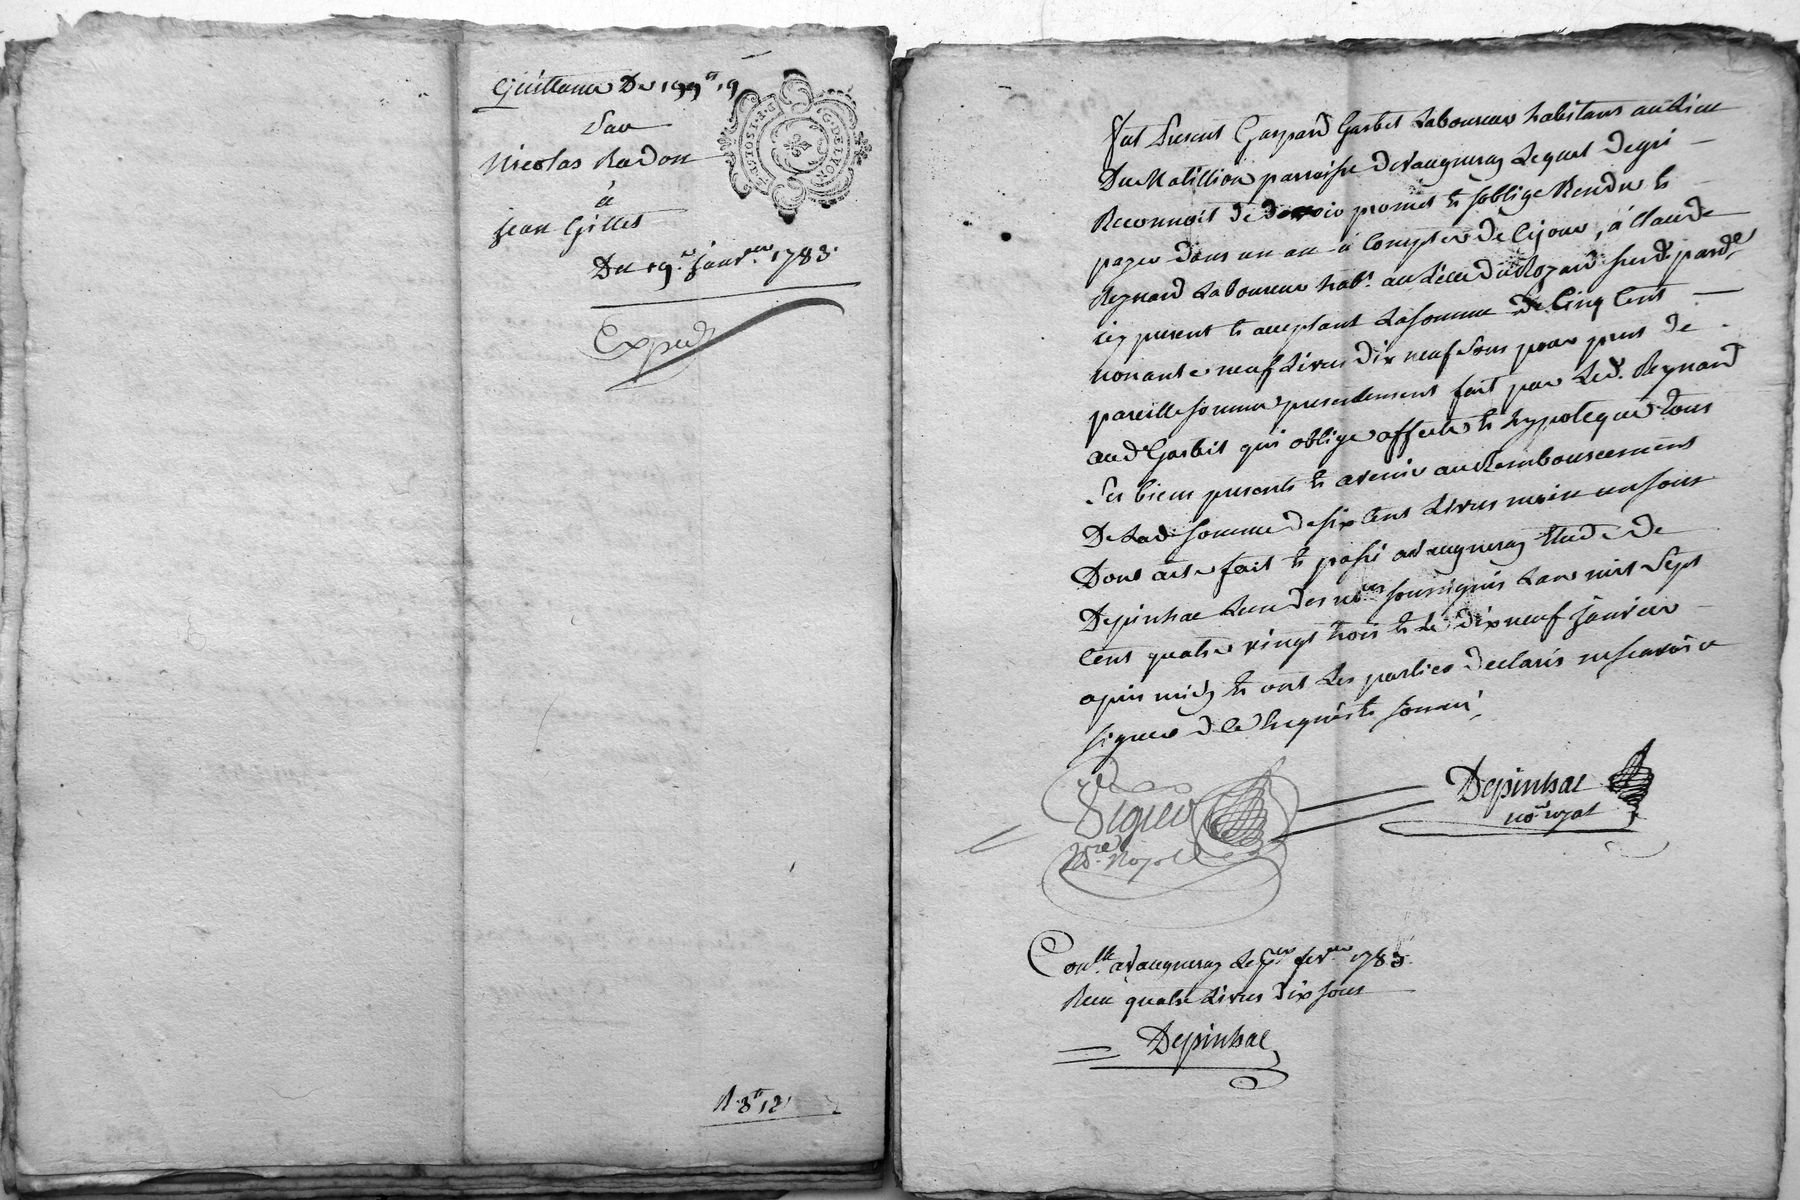 Quittance De 199ᵗᵗ 19
Par
Nicolas Radon
à
Jean Gilles
Du 19.ᵉ janv.ᵉʳ 1783.
Exped
G. DE LYON
R 3ᵗᵗ 12ˢ
fut Present Gaspard Garbit Laboureur habitans au Lieu
Du Ratillion parroisse de vaugneray Lequel de gré
Reconnoit de devoir promet et s'oblige Rendre et
payer dans un an à Compter de Cejour, à Claude
Reynard Laboureur hab.ᵗ au Lieu du Rozard sus.ᵈ par.ˢˢᵉ
icy present et acceptant La somme de Cinq Cent
nonante neuf Livres dix neuf sous pour prest de
pareille somme presentement fait par Led. Reynard
aud Garbit qui oblige affecte et hypoteque tous
Ses biens presents et avenir au Remboursement
De Lad.ᵉ somme de six Cent Livres moin un sous
Dont acte fait et passé a vaugneray Etude de
Depinhac L'un des no.ʳᵉˢ soussignés L'an mil Sept
Cent quatre vingt trois et Le dix neuf janvier
après midy et ont Les parties declarés ne scavoir
signer de Ce Enquis et sommé,
Depinhac
no.ʳᵉ royal
No.ʳᵉ Royal
Con.ˡˡᵉ a vaugneray Le 1.ᵉʳ fev.ʳⁱᵉʳ 1783.
Recu quatre Livres dix sous
Depinhac